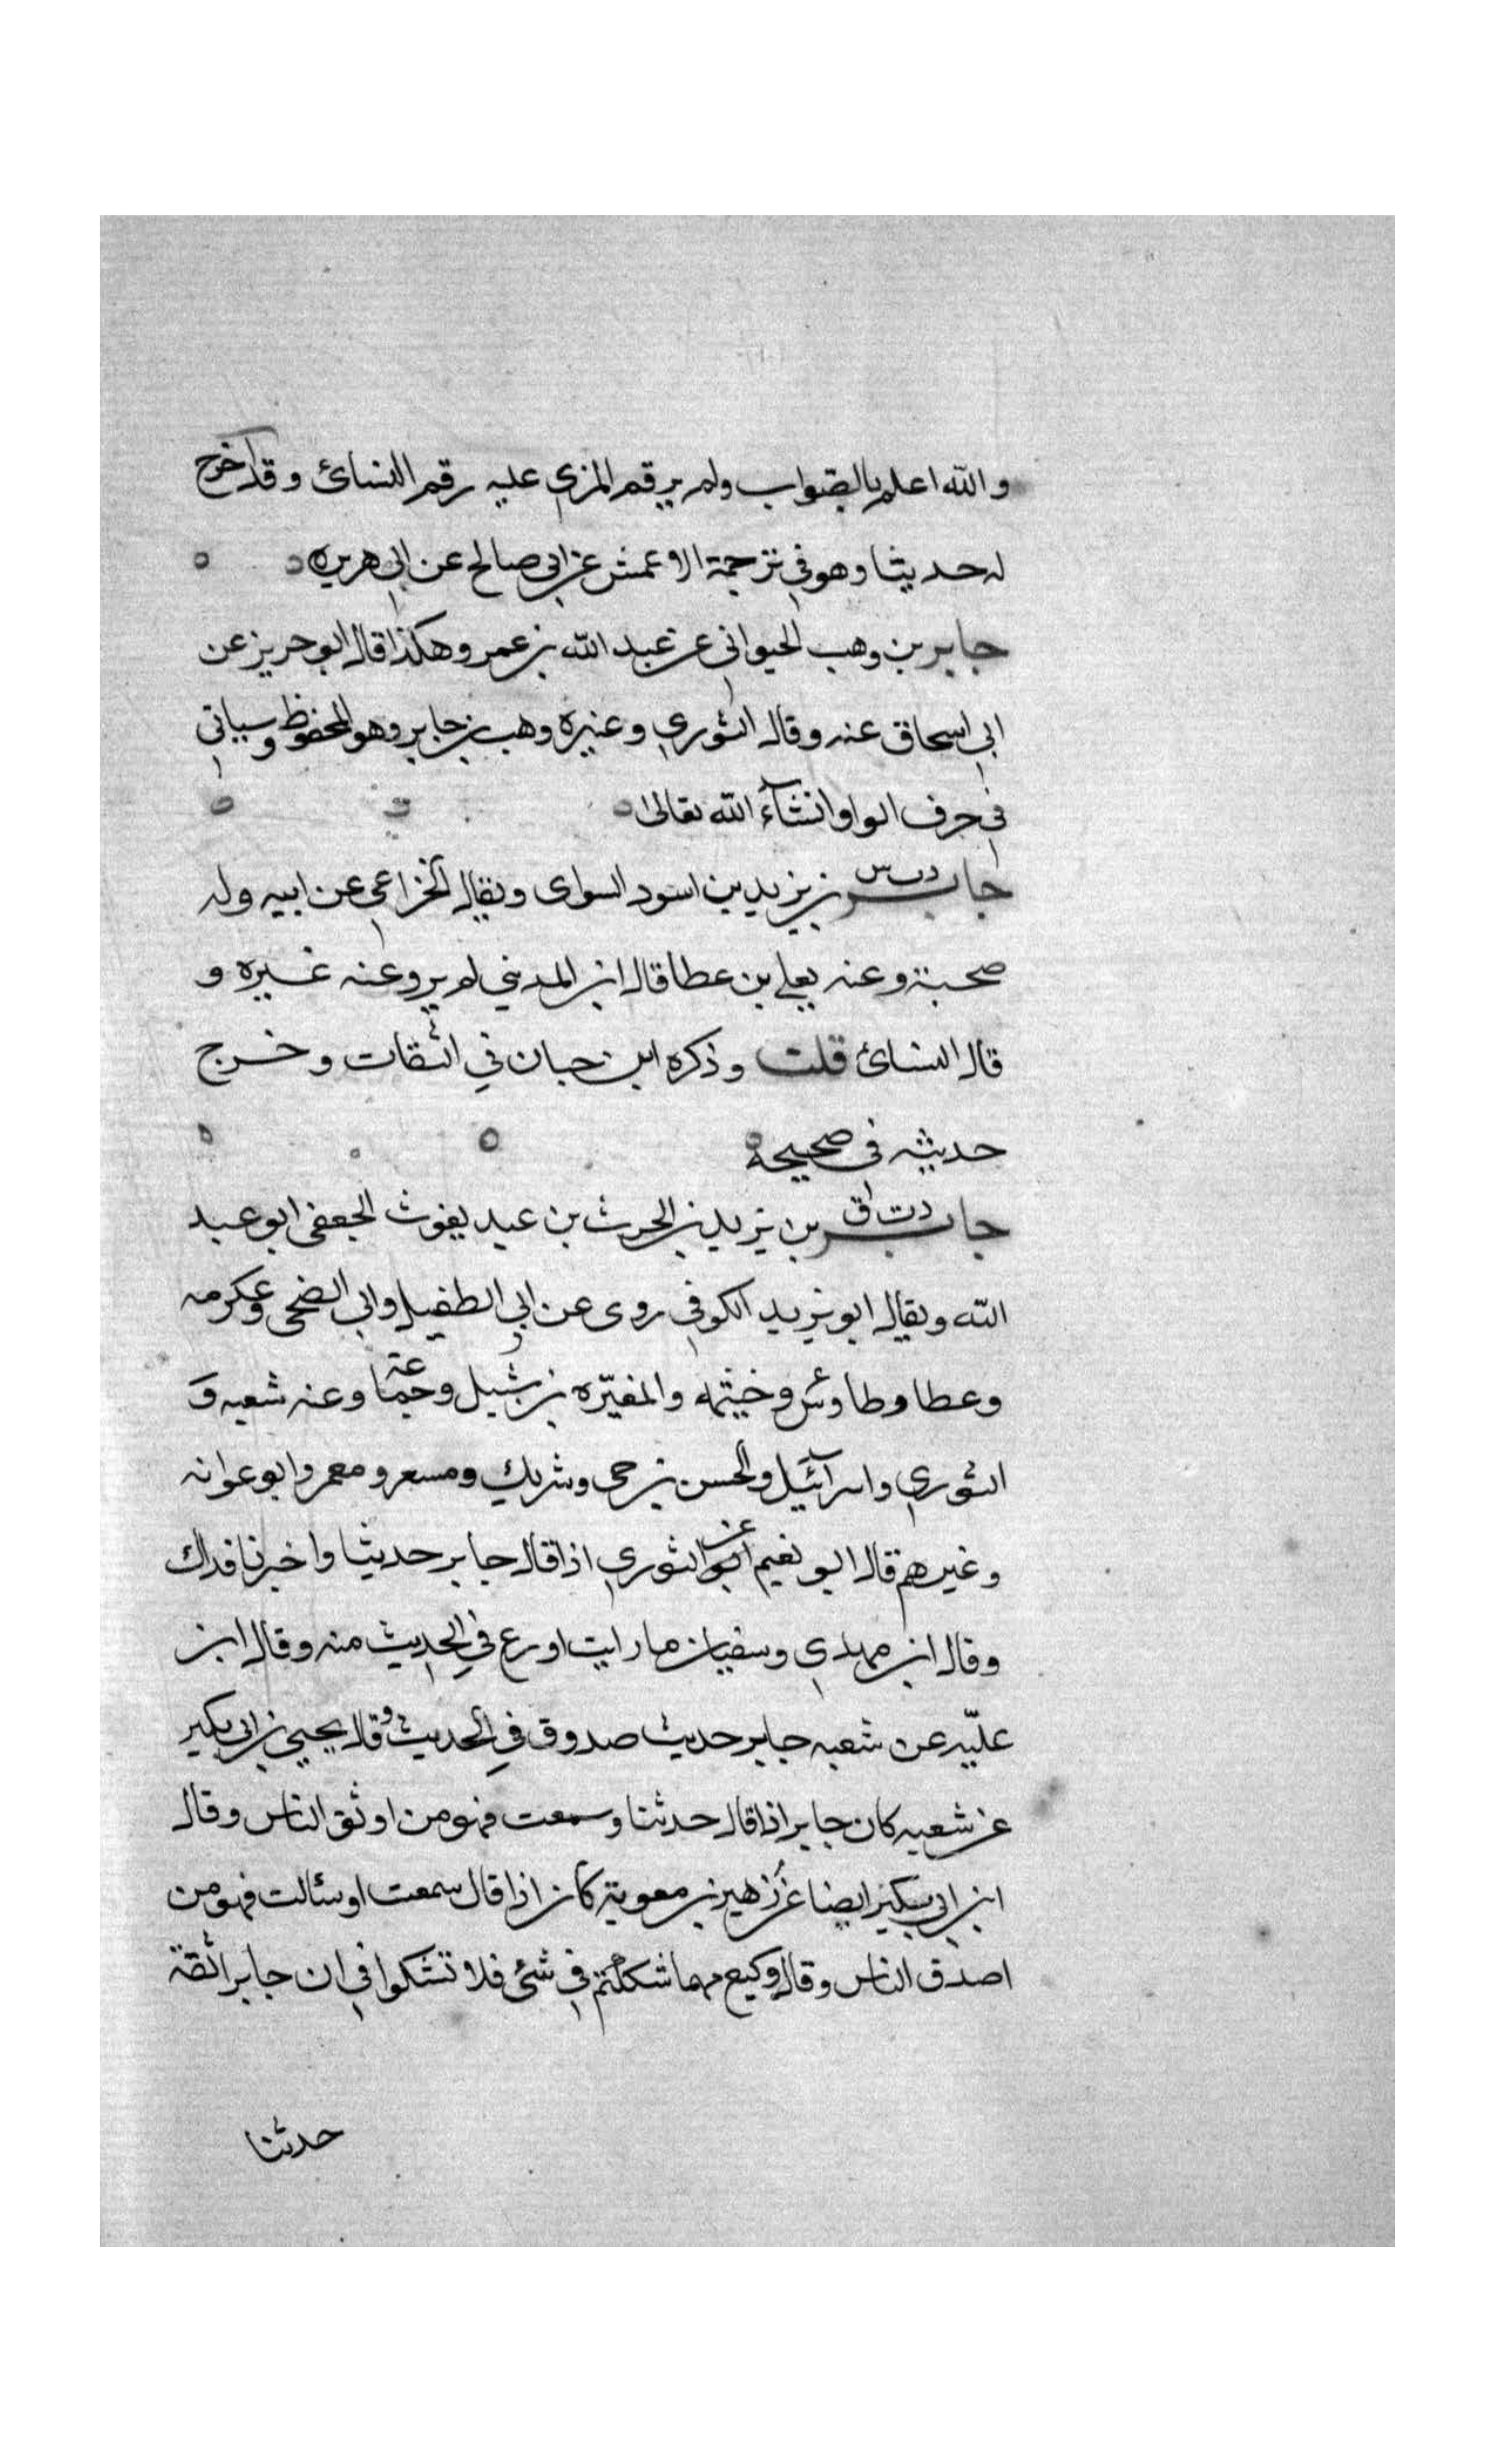 والله اعلم بالصواب ولم يرقم المزي عليه رقم النسائ وقد اخرج
له حديثا وهو في ترجمة الاعمش عن ابي صالح عن ابي هريره
جابر بن وهب الحيواني عن عبد الله بن عمرو هكذا قال ابو حريز عن
ابي اسحاق عنه وقال الثوري وغيره وهب بن جابر وهو المحفوظ وسياتي
في حرف الواو انشآء الله تعالى
جابر د ت س بن يزيد بن اسود السواى ويقال الخزاعي عن ابيه وله
صحبة وعنه يعلى بن عطا قال ابن المديني لم يرو عنه غيره و
قال النسائ قلت وذكره ابن حبان في الثقات وخرج
حديثه في صحيحه
جابر د ت ق بن يزيد بن الحرث بن عبد يغوث الجعفى ابو عبد
الله ويقال ابو يزيد الكوفي روى عن ابي الطفيل وابي الضحى وعكرمه
وعطا وطاوس وخيثمه والمغيره بن شبيل وجماعة وعنه شعبه و
الثوري واسرآئيل والحسن بن حى وشريك ومسعر ومعمر وابو عوانه
وغيرهم قال ابو نعيم عن الثوري اذا قال جابر حديثا واخبرنا فذاك
وقال ابن مهدي وسفيان ما رايت اورع في الحديث منه وقال ابن
عليّه عن شعبه جابر حديث صدوق في الحديث وقال يحيى بن ابي بكير
عن شعبه كان جابر اذا قال حدثنا وسمعت فهو من اوثق الناس وقال
ابن ابي بكير ايضا عن زهير بن معوية كان اذا قال سمعت او سئالت فهو من
اصدق الناس وقال وكيع مهما شككتم في شئ فلا تشكوا في ان جابرا ثقة
حدثنا